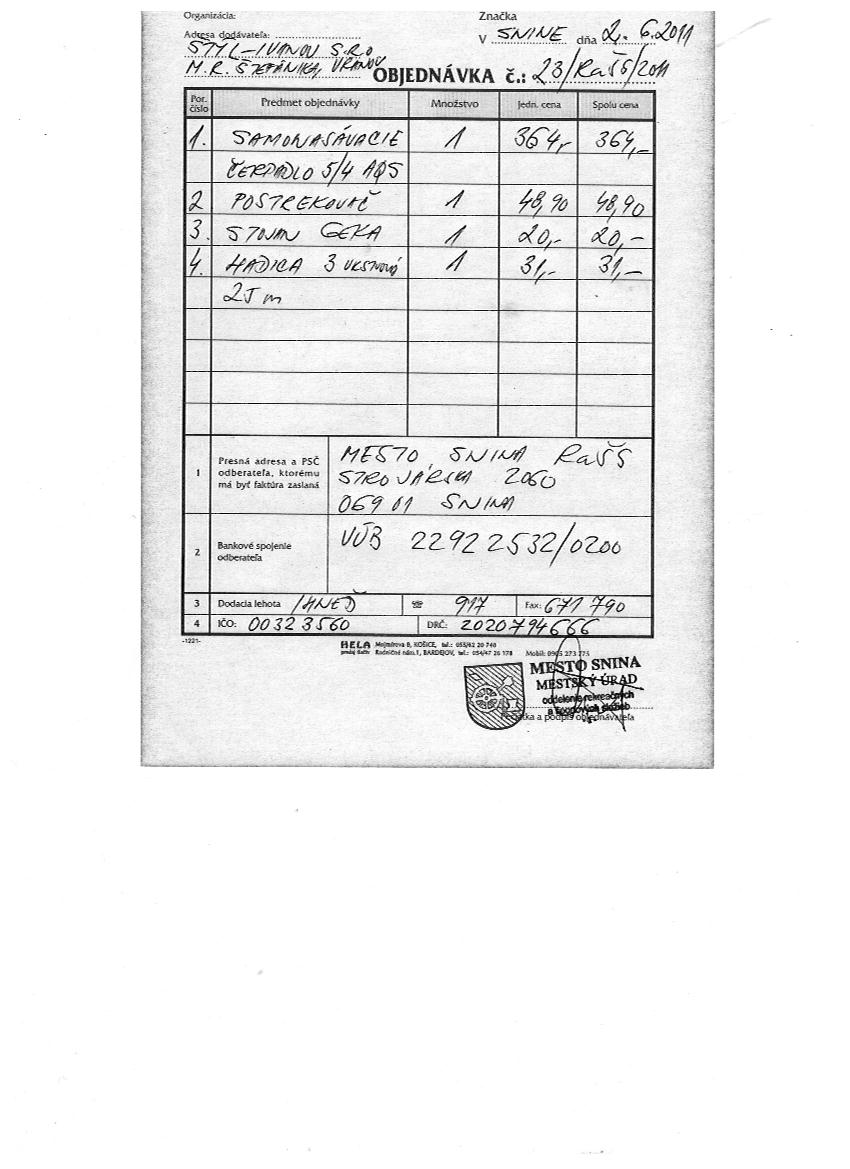 Organizácia:
Značka
Adresa dodávateľa:
V SNINE dňa 2. 6.2011
ŠTÝL-IVANOV S.R.O
M.R. ŠTEFÁNIKA, VRANOV
OBJEDNÁVKA č.: 23/RaŠS/2011
Por. číslo Predmet objednávky Množstvo Jedn. cena Spolu cena
1. SAMONASÁVACIE 1 364,- 364,-
ČERPADLO 5/4 AQS
2 POSTREKOVAČ 1 48,90 48,90
3. STOJAN GEKA 1 20,- 20,-
4. HADICA 3 1 31,- 31,-
25 m
1 Presná adresa a PSČ odberateľa, ktorému má byť faktúra zaslaná
MESTO SNINA RaŠS
STROJÁRSKA 2060
069 01 SNINA
2 Bankové spojenie odberateľa VÚB 22922532/0200
3 Dodacia lehota IHNEĎ ☎ 917 Fax: 671 790
4 IČO: 00323560 DRČ: 2020794666
-1221-
HELA Mojmírova 8, KOŠICE, tel.: 055/62 20 740
predaj tlačív Radničné nám.1, BARDEJOV, tel.: 054/47 26 178 Mobil: 0905 273 775
MESTO SNINA
MESTSKÝ ÚRAD
oddelenie rekreačných
a športových služieb
Pečiatka a podpis objednávateľa